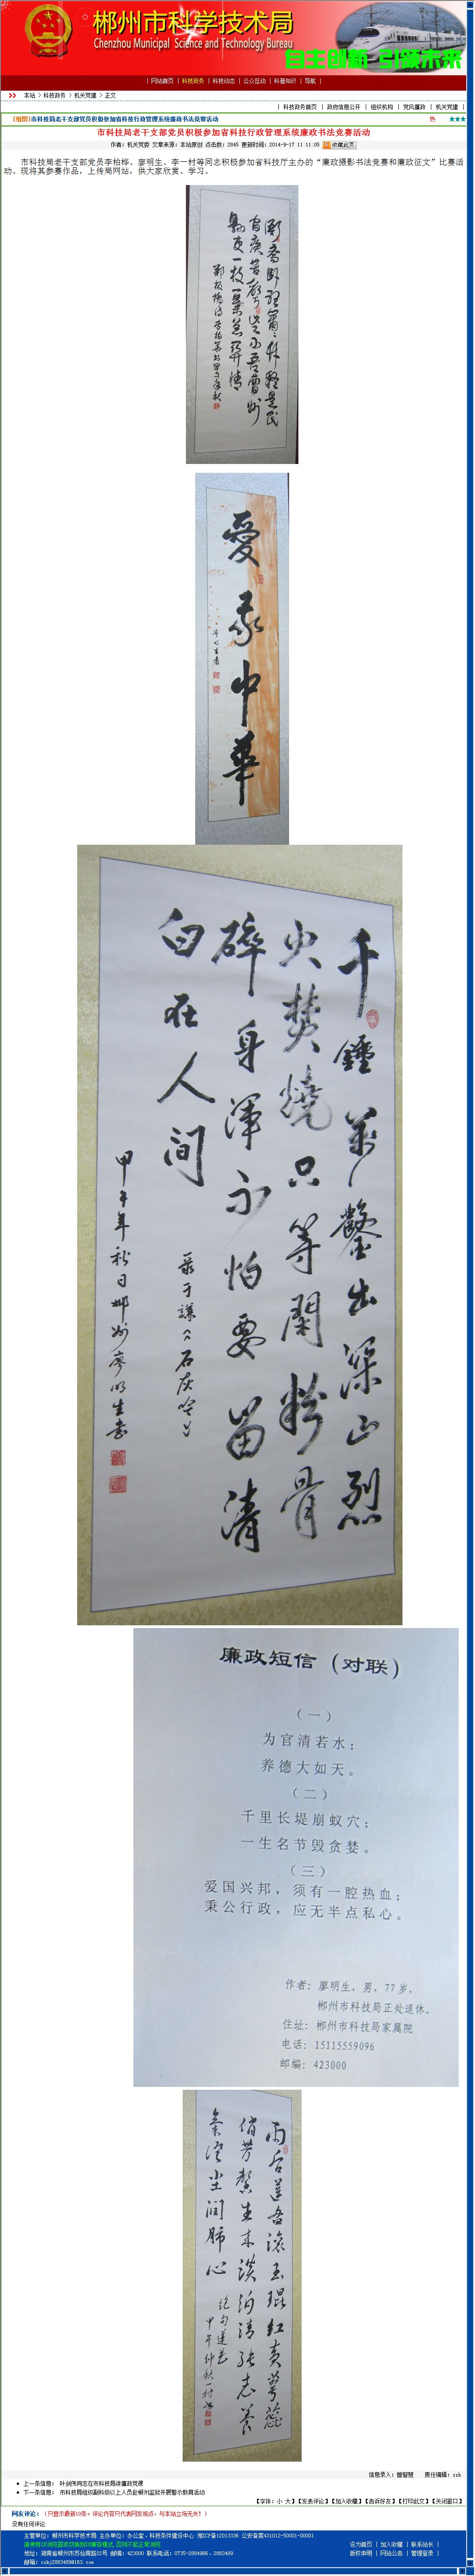 郴州市科学技术局
Chenzhou Municipal Science and Technology Bureau
自主创新 引领未来
| 网站首页 | 科技政务 | 科技动态 | 公众互动 | 科普知识 | 导航 |
本站 > 科技政务 > 机关党建 > 正文
| 科技政务首页 | 政府信息公开 | 组织机构 | 党风廉政 | 机关党建 |
[组图]市科技局老干支部党员积极参加省科技行政管理系统廉政书法竞赛活动
热 ★★★
市科技局老干支部党员积极参加省科技行政管理系统廉政书法竞赛活动
作者：机关党委 文章来源：本站原创 点击数：2845 更新时间：2014-9-17 11:11:05 收藏此页
市科技局老干支部党员李柏桦、廖明生、李一村等同志积极参加省科技厅主办的“廉政摄影书法竞赛和廉政征文”比赛活
动。现将其参赛作品，上传局网站，供大家欣赏、学习。
衙斋卧听萧萧竹疑是民
间疾苦声些小吾曹州
县吏一枝一叶总关情
爱我中华
千锤万凿出深山烈
火焚烧只等闲粉骨
碎身浑不怕要留清
白在人间
录于谦《石灰吟》
甲午年秋日郴州廖明生书
廉政短信（对联）
（一）
为官清若水；
养德大如天。
（二）
千里长堤崩蚁穴；
一生名节毁贪婪。
（三）
爱国兴邦，须有一腔热血；
秉公行政，应无半点私心。
作者：廖明生，男，77岁，
郴州市科技局正处退休。
住址：郴州市科技局家属院
电话：15115559096
邮编：423000
信息录入：曾智慧 责任编辑：zzh
上一条信息： 叶剑伟同志在市科技局讲廉政党课
下一条信息： 市科技局组织副科级以上人员赴郴州监狱开展警示教育活动
【字体：小 大】【发表评论】【加入收藏】【告诉好友】【打印此文】【关闭窗口】
网友评论：（只显示最新10条。评论内容只代表网友观点，与本站立场无关！）
没有任何评论
主管单位：郴州市科学技术局 主办单位：办公室、科技条件建设中心 湘ICP备12013336 公安备案431012-50001-00001
地址：湖南省郴州市苏仙南路22号 邮编：423000 联系电话：0735-2884966、2883489
设为首页 | 加入收藏 | 联系站长 |
版权申明 | 网站公告 | 管理登录 |